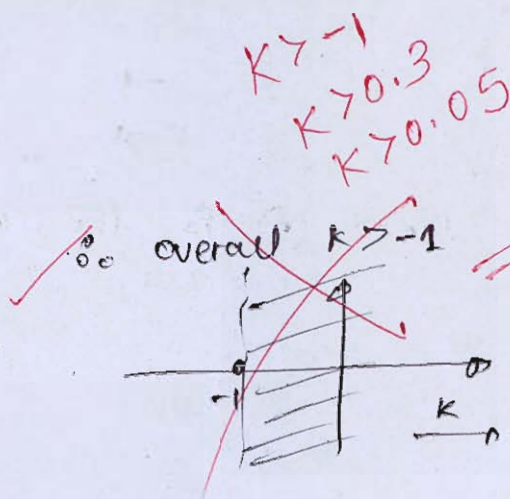 K > -1
K > 0.3
K > 0.05
∴ overall K > -1
-1
K